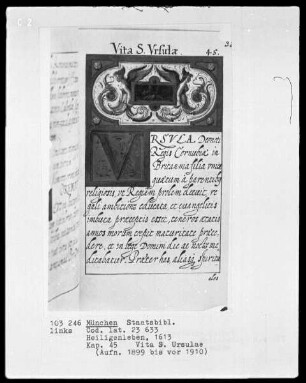 Vita S. Vrsulæ
45.
V
RSVLA Deonoti
Regis Cornubiæ in
Britannia filia, unica
quæ cum a parentibus
religiosis, ut Regiam prolem decuit, re
gali ambitione educata, et euangelicis
imbuta præceptis esset, teneros ætatis
annos morum cœpit maturitate præce
dere, et in lege Domini die ac nocte me
ditabatur. Præter hæc, aliaq
103 246 München Staatsbibl.
links Cod. lat. 23 633
Heiligenleben, 1613
Kap. 45 Vita S. Ursulae
(Aufn. 1899 bis vor 1910)